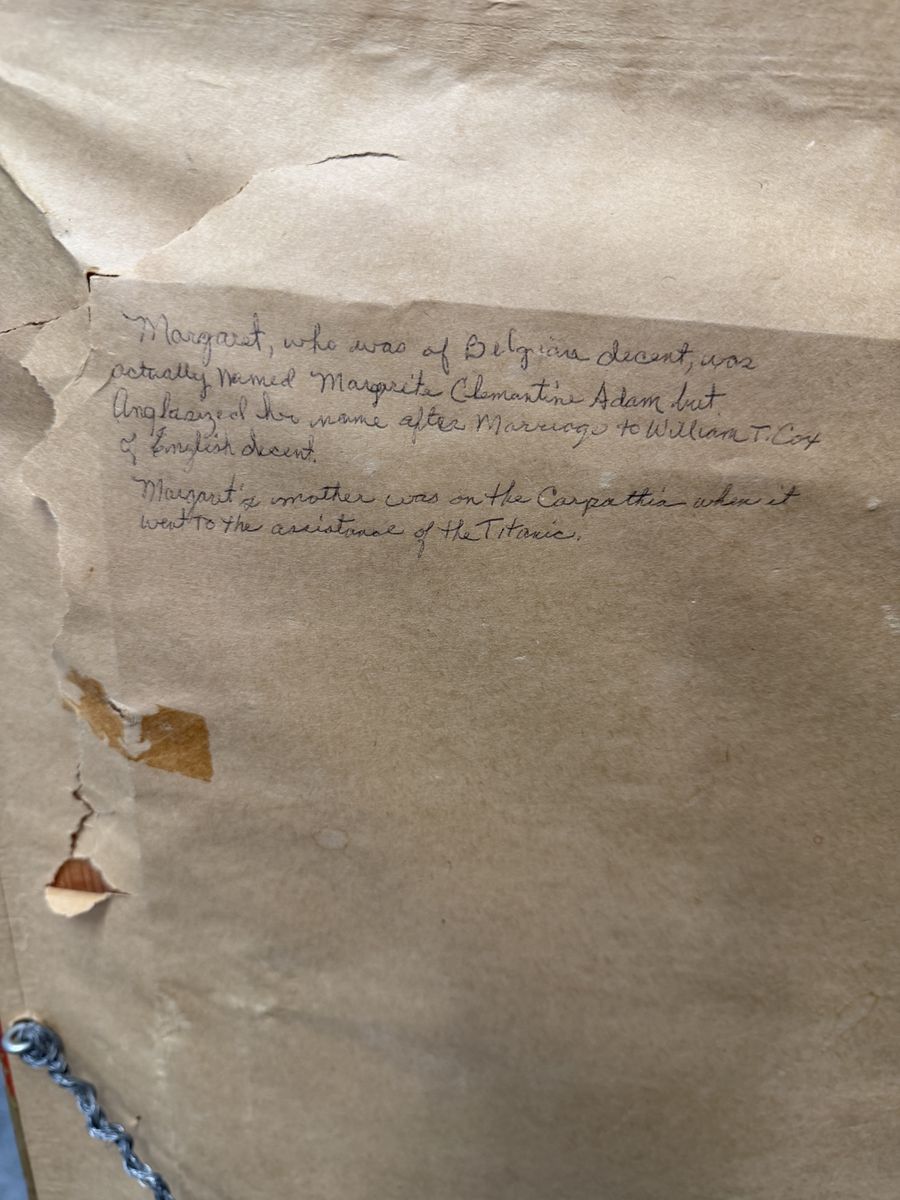 Margaret, who was of Belgian decent, was
actually named Margrite Clemantine Adam but
Anglasized her name after Marriage to William T. Cox
of English decent.
Margaret's mother was on the Carpathia when it
went to the assistance of the Titanic.